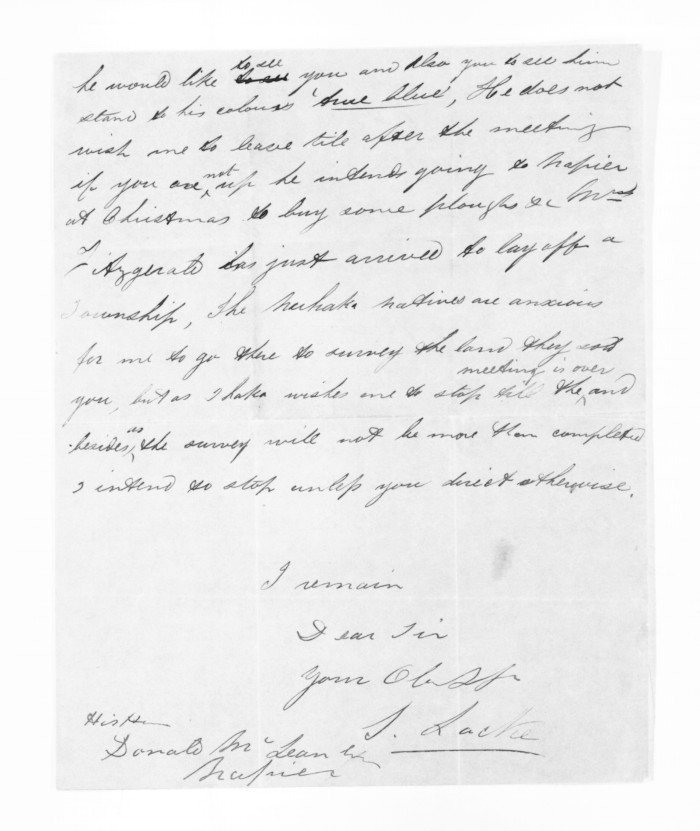 he would like to see you and also you to see him
stand to his colours 'true blue', He does not
wish me to leave till after the meeting
if you are not up he intends going to Napier
at Christmas to buy some ploughs &c Mr
Fitzgerald has just arrived to lay off a
Township, The Nuhaka natives are anxious
for me to go there to survey the land they sold
you, but as Ihaka wishes me to stop till the meeting is over and
besides as the survey will not be more than completed
I intend to stop unless you direct otherwise.
I remain
Dear Sir
Your Obt Svt
S. Locke
His Hon
Donald McLean Esq
Napier